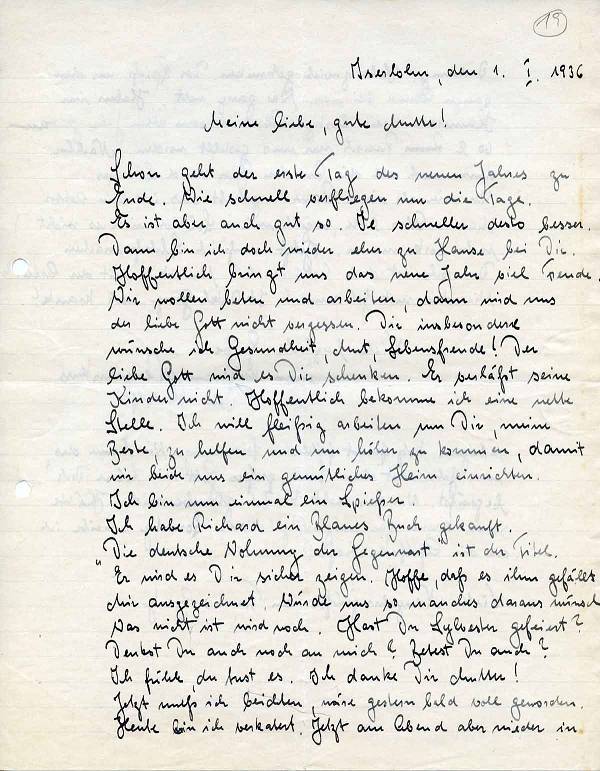 19
Iserlohn, den 1. I. 1936
Meine liebe, gute Mutter!
Schon geht der erste Tag des neuen Jahres zu
Ende. Wie schnell verfliegen nun die Tage.
Es ist aber auch gut so. Je schneller desto besser.
Dann bin ich doch wieder eher zu Hause bei Dir.
Hoffentlich bringt uns das neue Jahr viel Freude.
Wir wollen beten und arbeiten, dann wird uns
der liebe Gott nicht vergessen. Dir insbesondere
wünsche ich Gesundheit, Mut, Lebensfreude! Der
liebe Gott wird es Dir schenken. Er verläßt seine
Kinder nicht. Hoffentlich bekomme ich eine nette
Stelle. Ich will fleißig arbeiten um Dir, meine
Beste, zu helfen und um höher zu kommen, damit
wir beide uns ein gemütliches Heim einrichten.
Ich bin nun einmal ein Spießer.
Ich habe Richard ein Blaues Buch gekauft.
"Die deutsche Wohnung der Gegenwart" ist der Titel.
Er wird es Dir sicher zeigen. Hoffe, daß es ihm gefällt
Mir ausgezeichnet. Würde uns so manches daraus wünsch
Was nicht ist wird noch. Hast Du Sylvester gefeiert?
Denkst Du auch noch an mich? Betest Du auch?
Ich fühle, du tust es. Ich danke Dir Mutter!
Jetzt muß ich beichten, wäre gestern bald voll geworden.
Heute bin ich verkatert. Jetzt am Abend aber wieder in